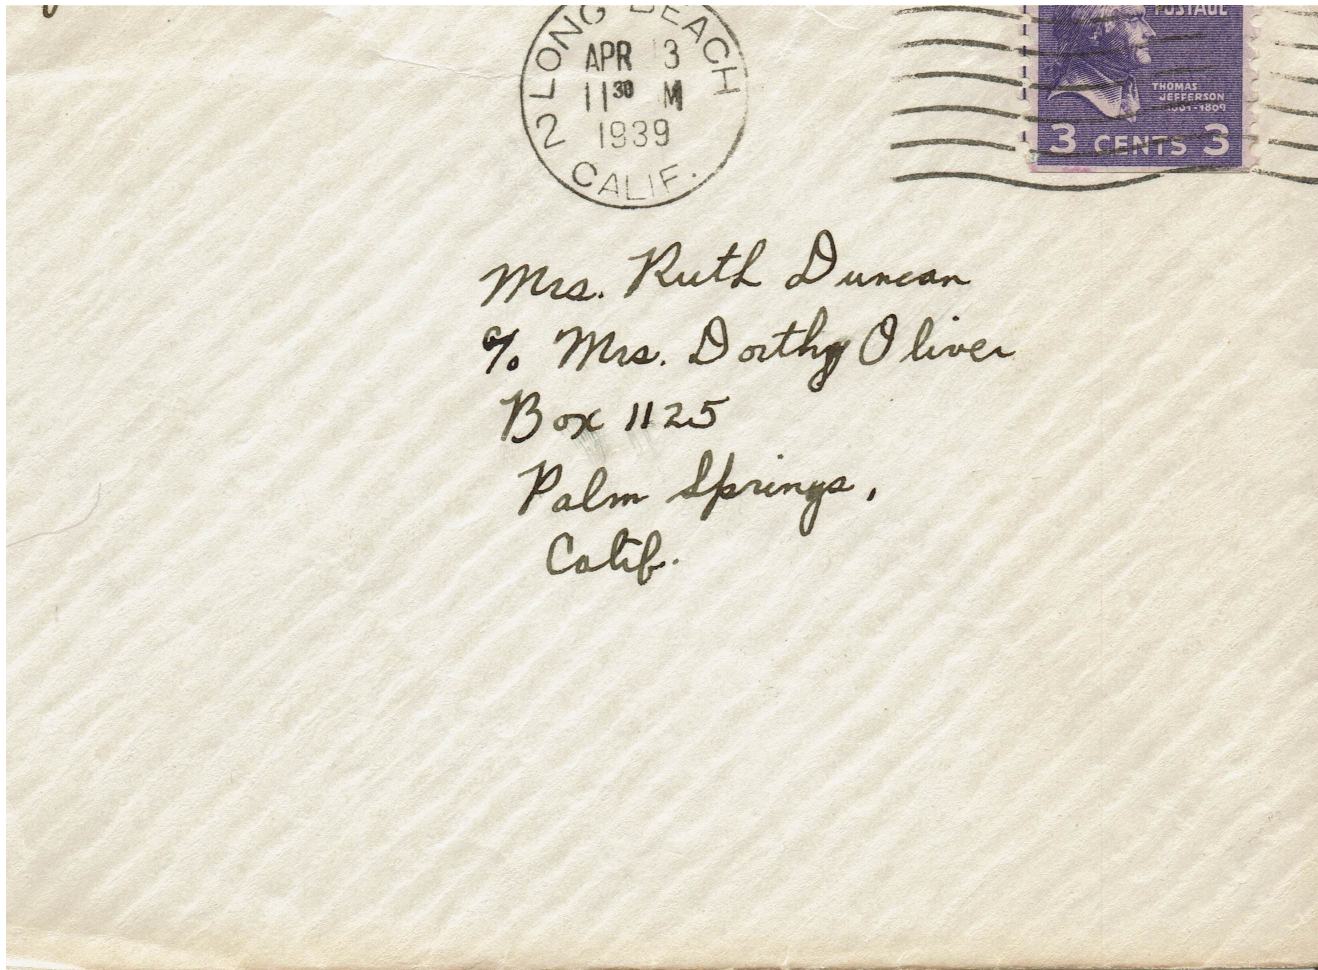 LONG BEACH
APR 13
11 30 M
1939
2 CALIF.
POSTAGE
THOMAS
JEFFERSON
1801-1809
3 CENTS 3
Mrs. Ruth Duncan
c/o Mrs. Dorthy Oliver
Box 1125
Palm Springs,
Calif.